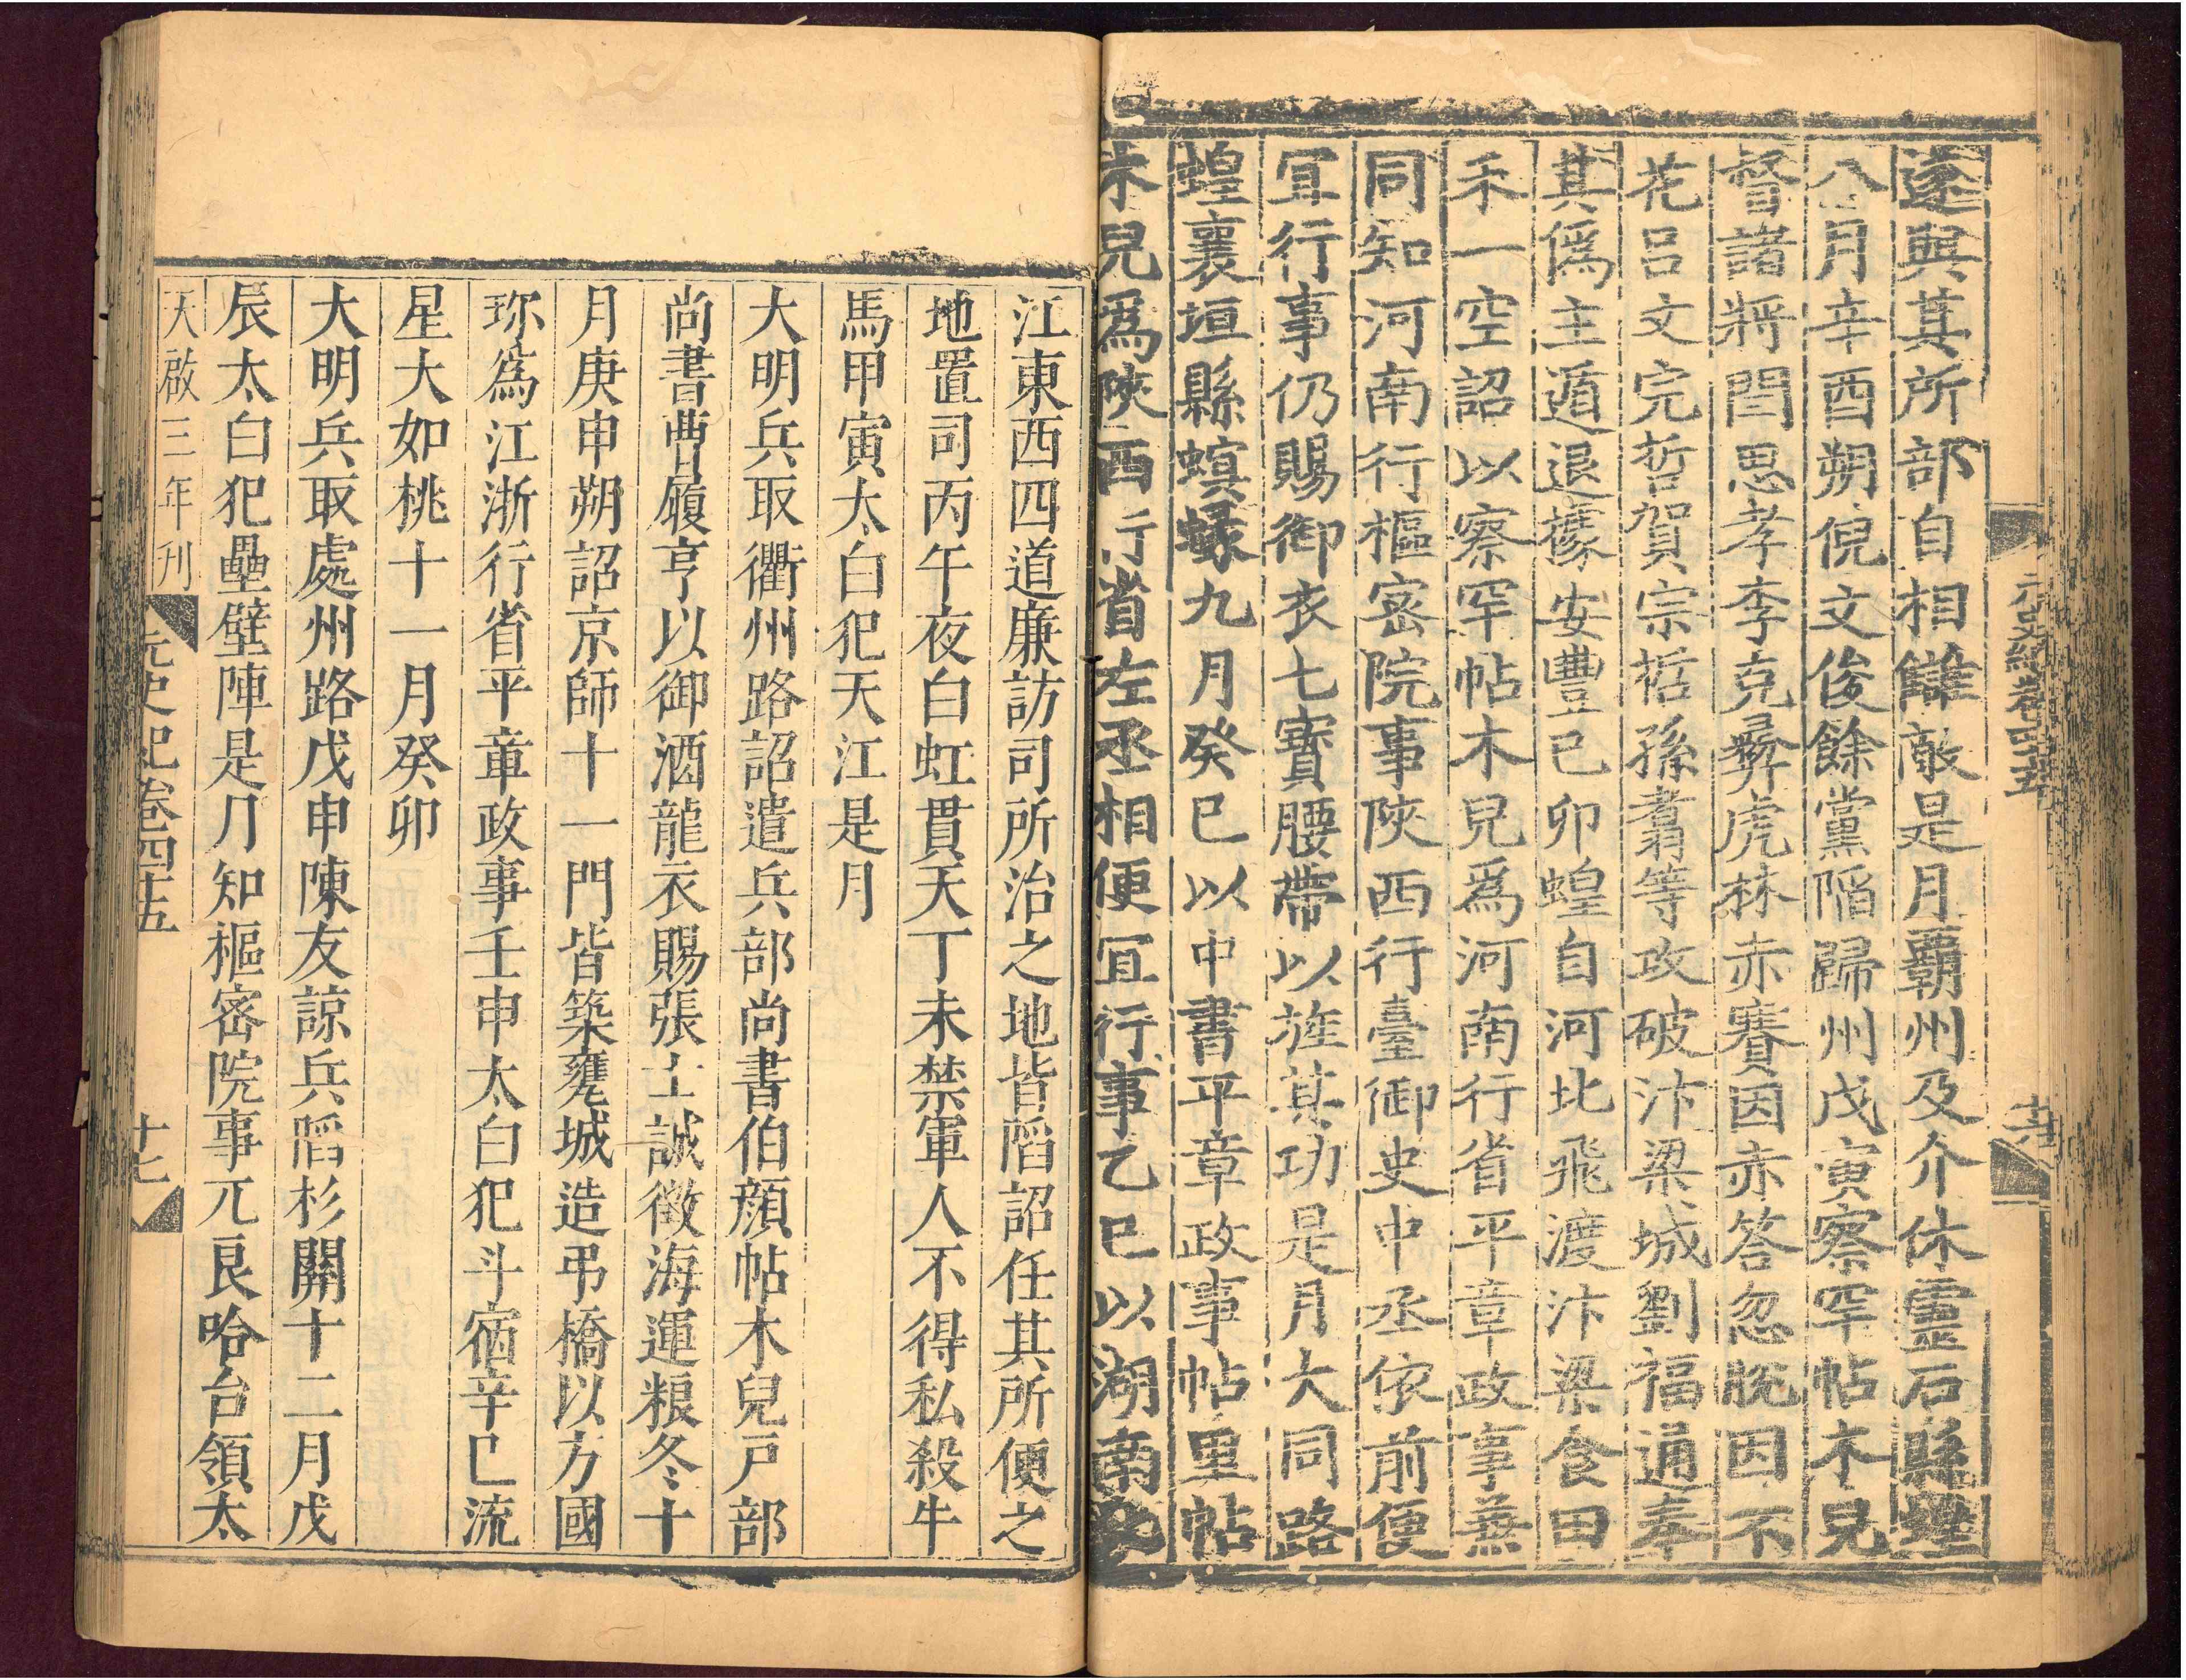 遂與其所部自相讎敵是月霸州及介休靈石縣蝗
八月辛酉朔倪文俊餘黨陷歸州戊寅察罕帖木兒
督諸將閆思孝李克彝虎林赤賽因赤答忽脫因不
花呂文完哲賀宗哲孫翥等攻破汴梁城劉福通奉
其偽主遁退據安豐己卯蝗自河北飛渡汴梁食田
禾一空詔以察罕帖木兒為河南行省平章政事兼
同知河南行樞密院事陝西行臺御史中丞依前便
宜行事仍賜御衣七寶腰帶以旌其功是月大同路
蝗襄垣縣螟蝝九月癸巳以中書平章政事帖里帖
木兒為陝西行省左丞相便宜行事乙巳以湖南
元史紀卷四十五
十六
江東西四道廉訪司所治之地皆陷詔任其所便之
地置司丙午夜白虹貫天丁未禁軍人不得私殺牛
馬甲寅太白犯天江是月
大明兵取衢州路詔遣兵部尚書伯顏帖木兒戶部
尚書曹履亨以御酒龍衣賜張士誠徵海運粮冬十
月庚申朔詔京師十一門皆築甕城造弔橋以方國
珍為江浙行省平章政事壬申太白犯斗宿辛巳流
星大如桃十一月癸卯
大明兵取處州路戊申陳友諒兵陷杉關十二月戊
辰太白犯壘壁陣是月知樞密院事兀良哈台領太
天啟三年刊
元史紀卷四十五
十七